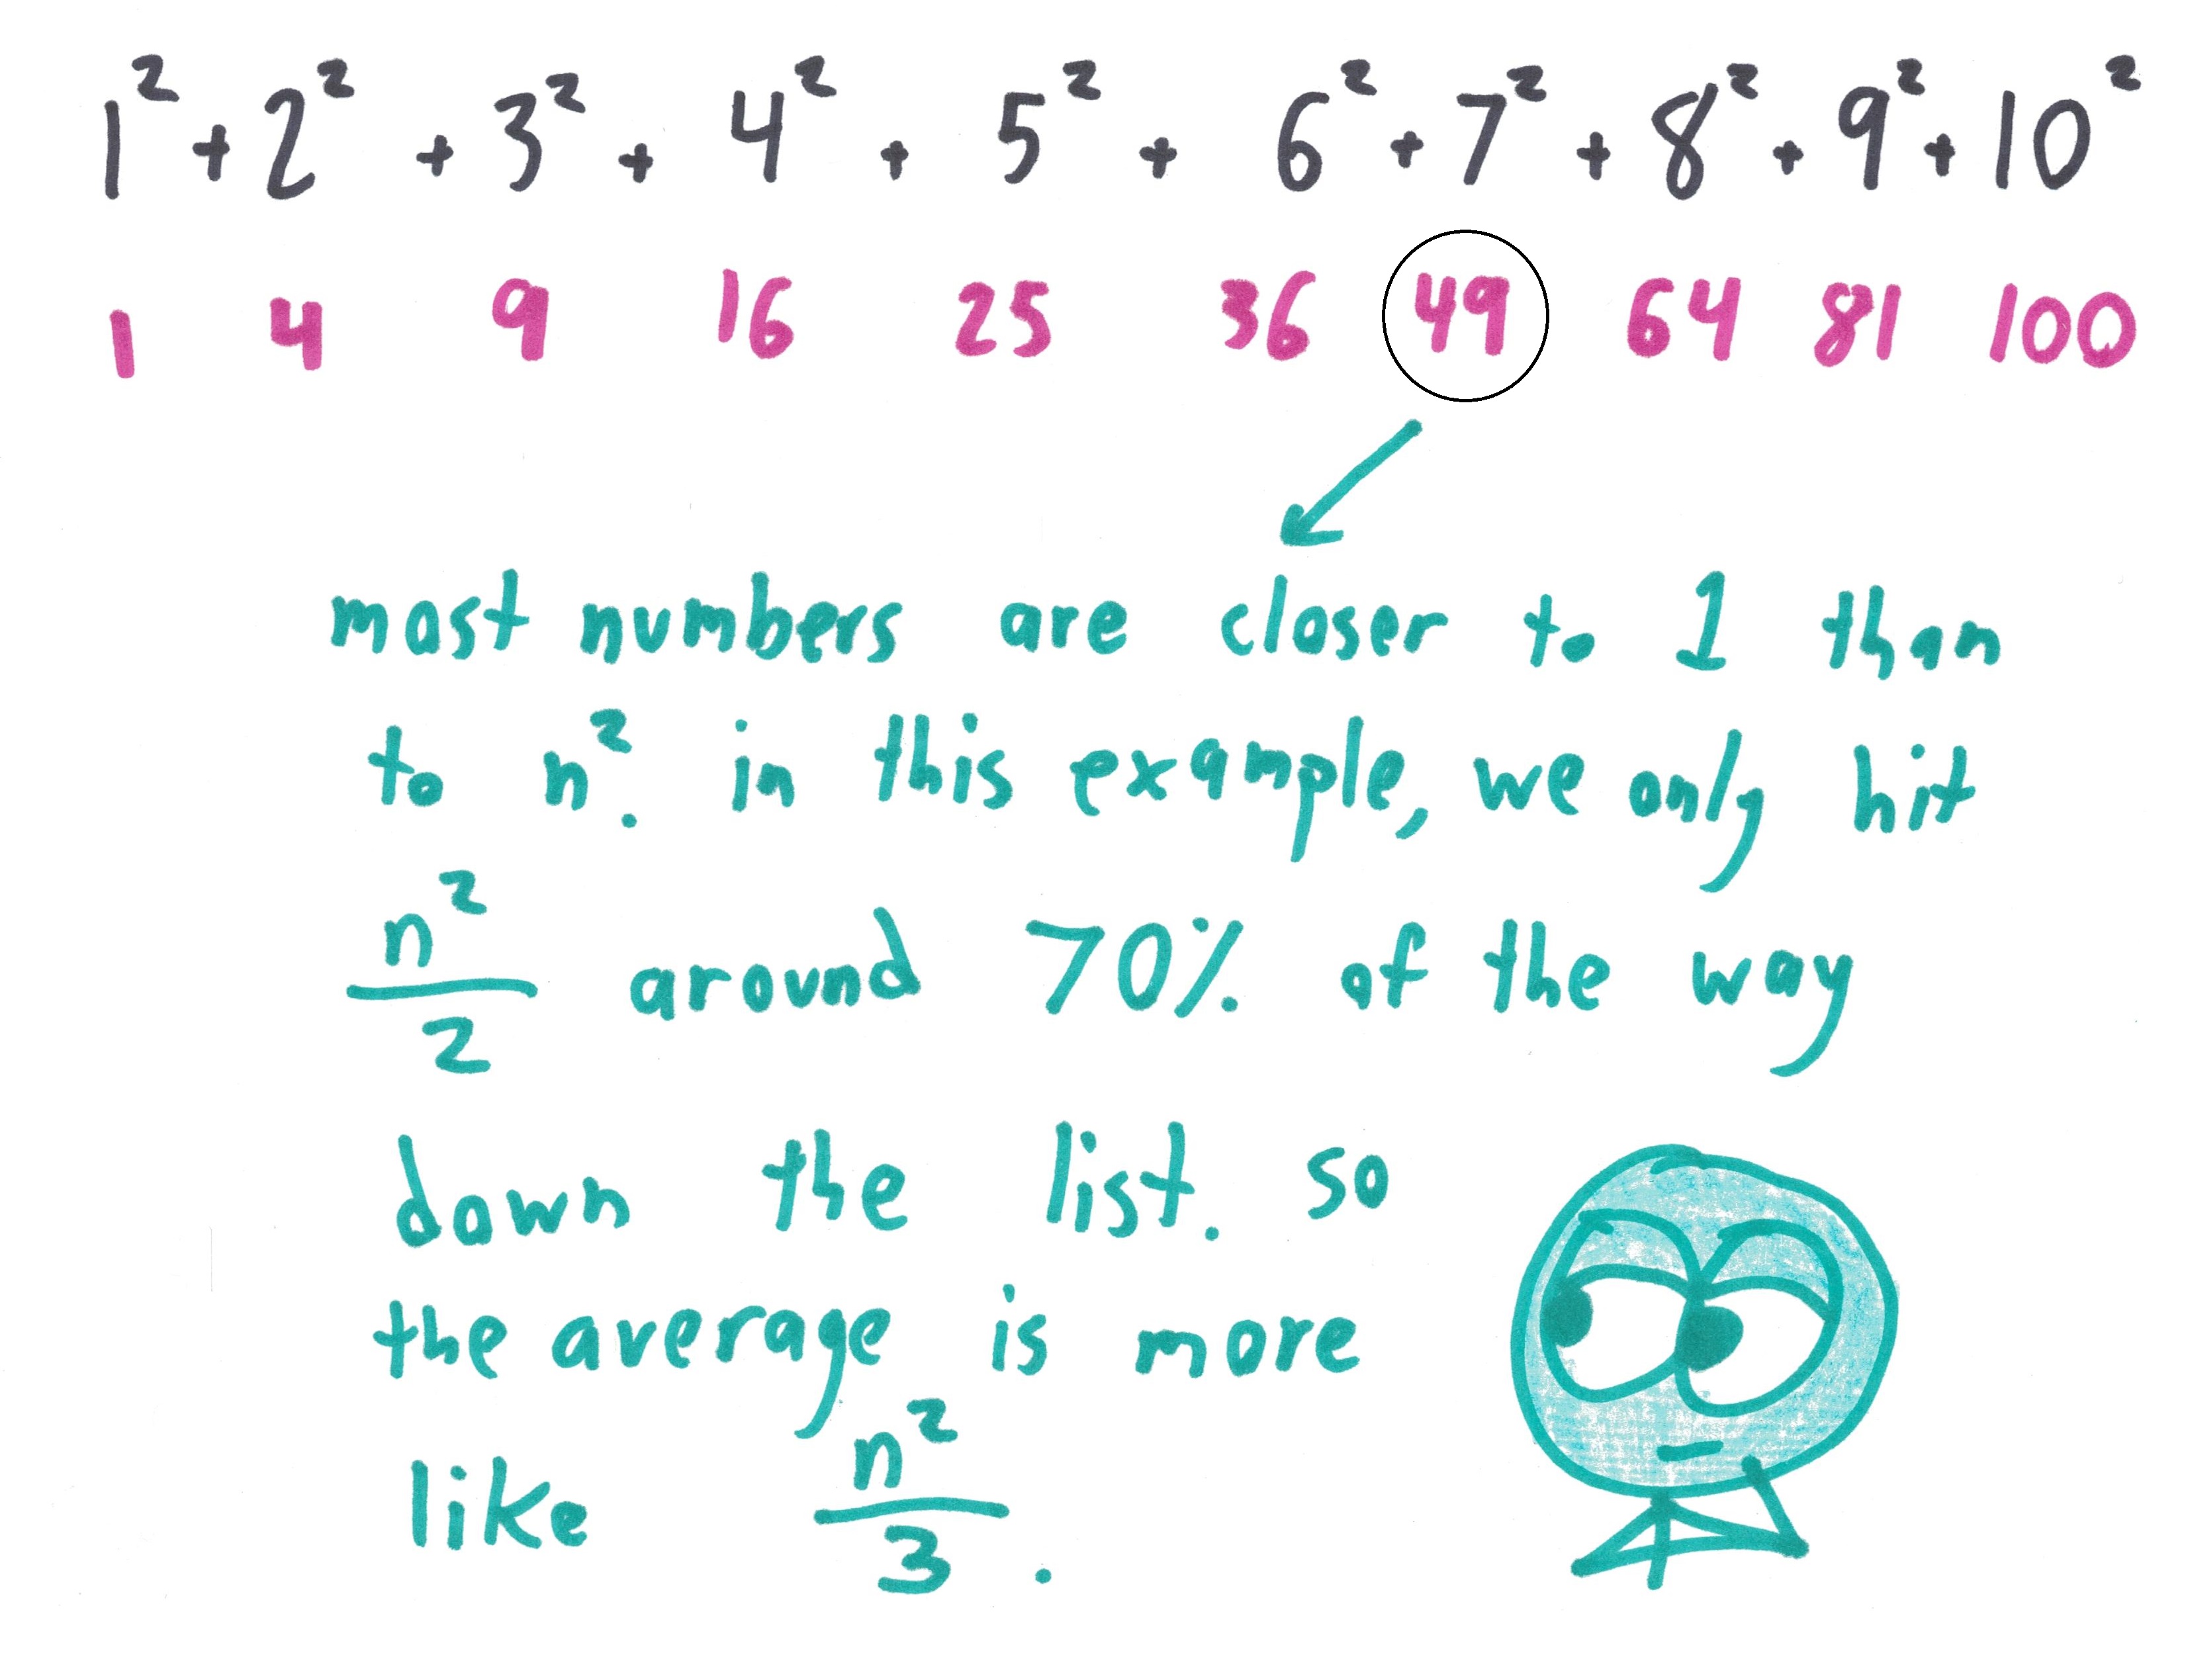 1² + 2² + 3² + 4² + 5² + 6² + 7² + 8² + 9² + 10²
1 4 9 16 25 36 49 64 81 100
most numbers are closer to 1 than
to n². in this example, we only hit
n²/2 around 70% of the way
down the list. so
the average is more
like n²/3.